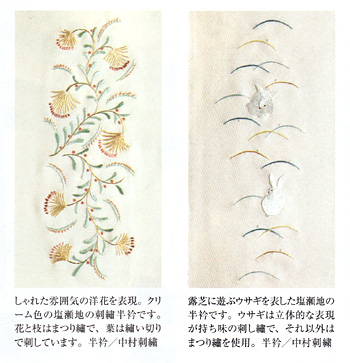 しゃれた雰囲気の洋花を表現。クリ
ーム色の塩瀬地の刺繡半衿です。
花と枝はまつり繡で、葉は繡い切り
で刺しています。半衿／中村刺繡
露芝に遊ぶウサギを表した塩瀬地の
半衿です。ウサギは立体的な表現
が持ち味の刺し繡で、それ以外は
まつり繡を使用。半衿／中村刺繡